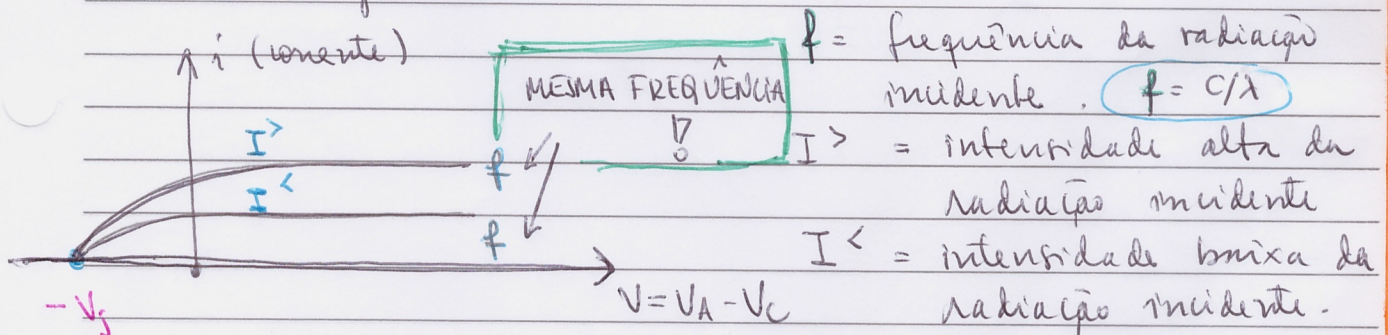 i (corrente)
MESMA FREQUÊNCIA
!?
I>
f
I<
f
-Vf
V=VA-VC
f = frequência da radiação
incidente. f = C/λ
I> = intensidade alta da
radiação incidente
I< = intensidade baixa da
radiação incidente.